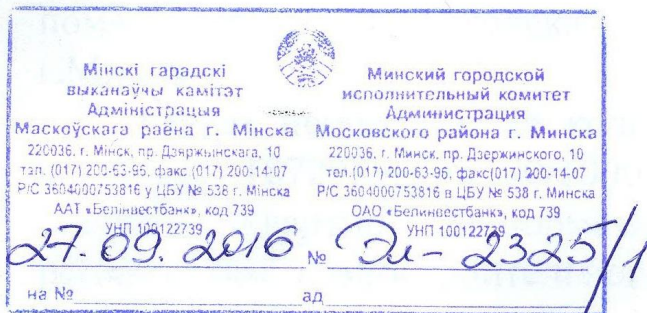 Мінскі гарадскі
выканаўчы камітэт
Адміністрацыя
Маскоўскага раёна г. Мінска
220036, г. Мінск, пр. Дзяржынскага, 10
тэл. (017) 200-63-96, факс (017) 200-14-07
Р/С 3604000753816 у ЦБУ № 538 г. Мінска
ААТ «Белінвестбанк», код 739
УНП 100122739
Минский городской
исполнительный комитет
Администрация
Московского района г. Минска
220036, г. Минск, пр. Дзержинского, 10
тел.(017) 200-63-96, факс(017) 200-14-07
Р/С 3604000753816 в ЦБУ № 538 г. Минска
ОАО «Белинвестбанк», код 739
УНП 100122739
27.09.2016 № Эл-2325/1
на № ад